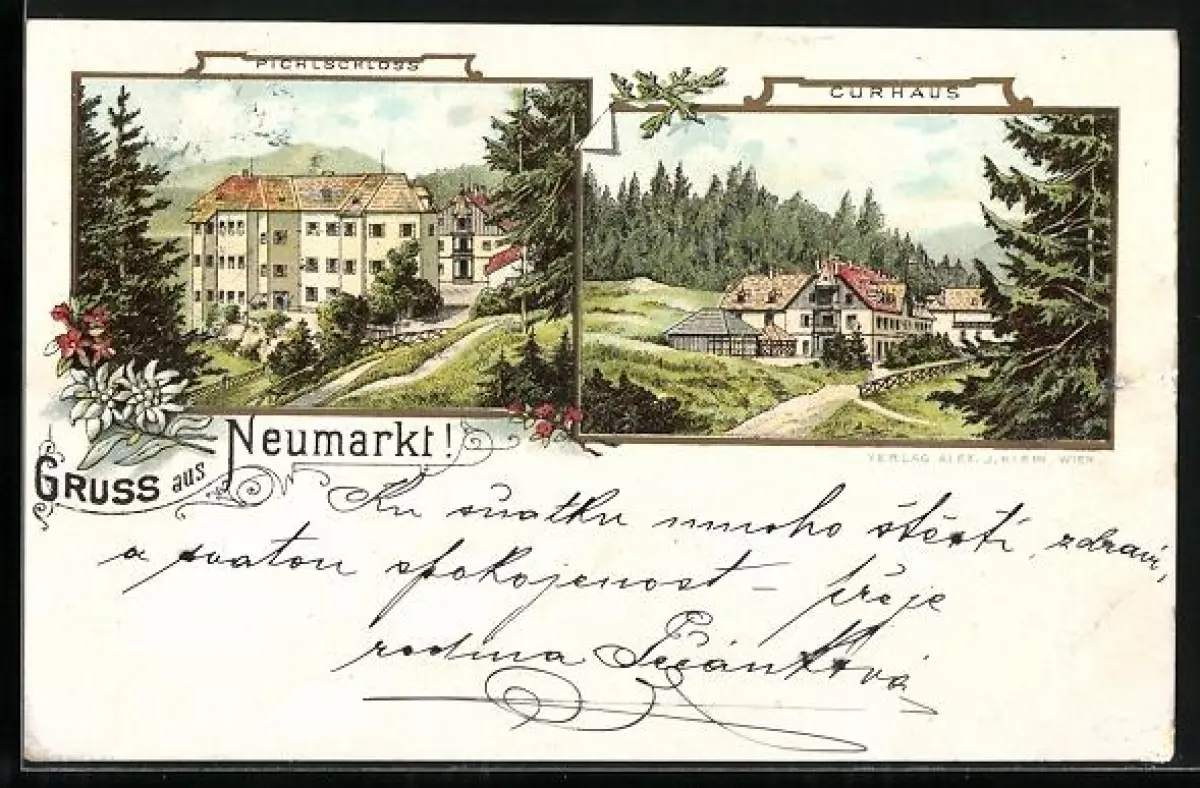 PICHLSCHLOSS
CURHAUS
VERLAG ALEX. J. KLEIN, WIEN.
GRUSS aus Neumarkt!
Ku svatku mnoho štěstí, zdraví,
a svatou spokojenost – přeje
rodina